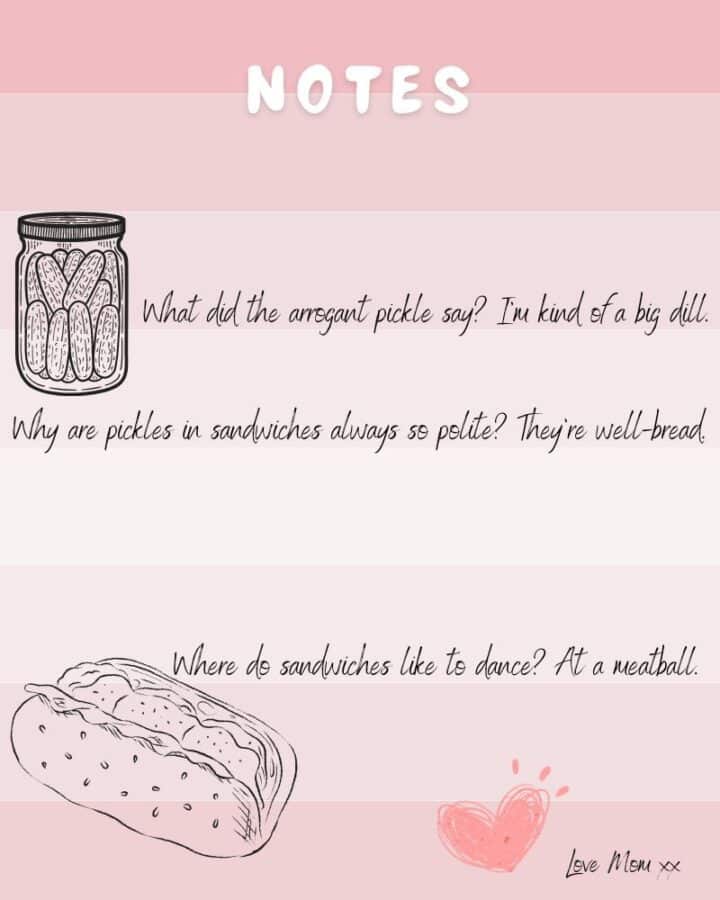 NOTES
What did the arrogant pickle say? I'm kind of a big dill.
Why are pickles in sandwiches always so polite? They're well-bread.
Where do sandwiches like to dance? At a meatball.
Love Mom xx